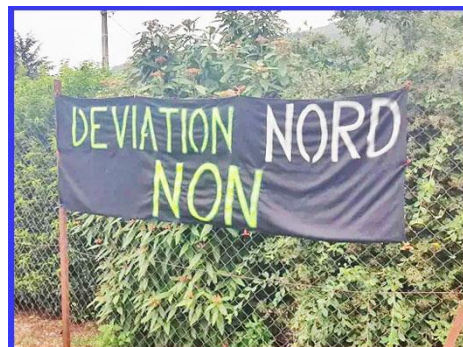 DEVIATION NORD
NON